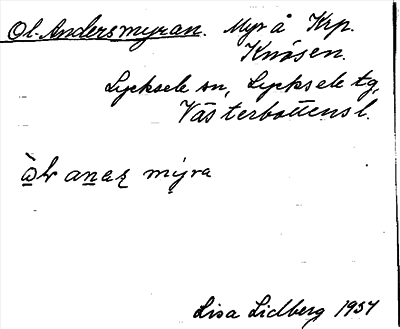 Ol-Andersmyran. Myr å Krp.
Knösen.
Lycksele sn, Lycksele tg,
Västerbottens l.
mýra
Lisa Lidberg 1937